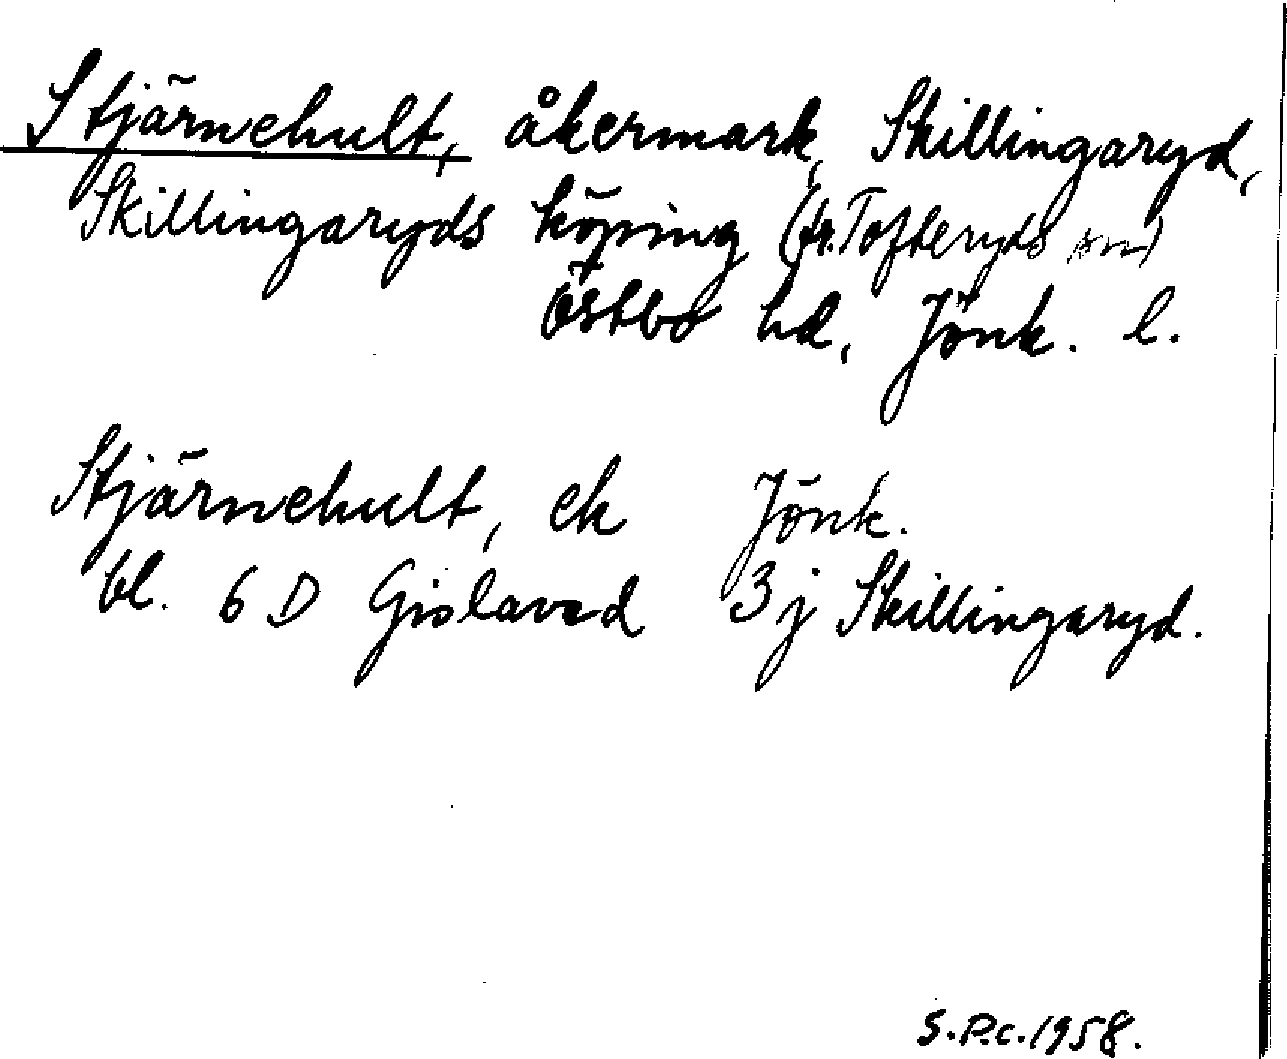 Stjärnehult, åkermark, Skillingaryd,
Skillingaryds köping (fr. Tofteryds sn)
Östbo hd, Jönk. l.
Stjärnehult, ek Jönk.
bl. 6 D Gislaved 3 j Skillingaryd.
S.P.c. 1958.